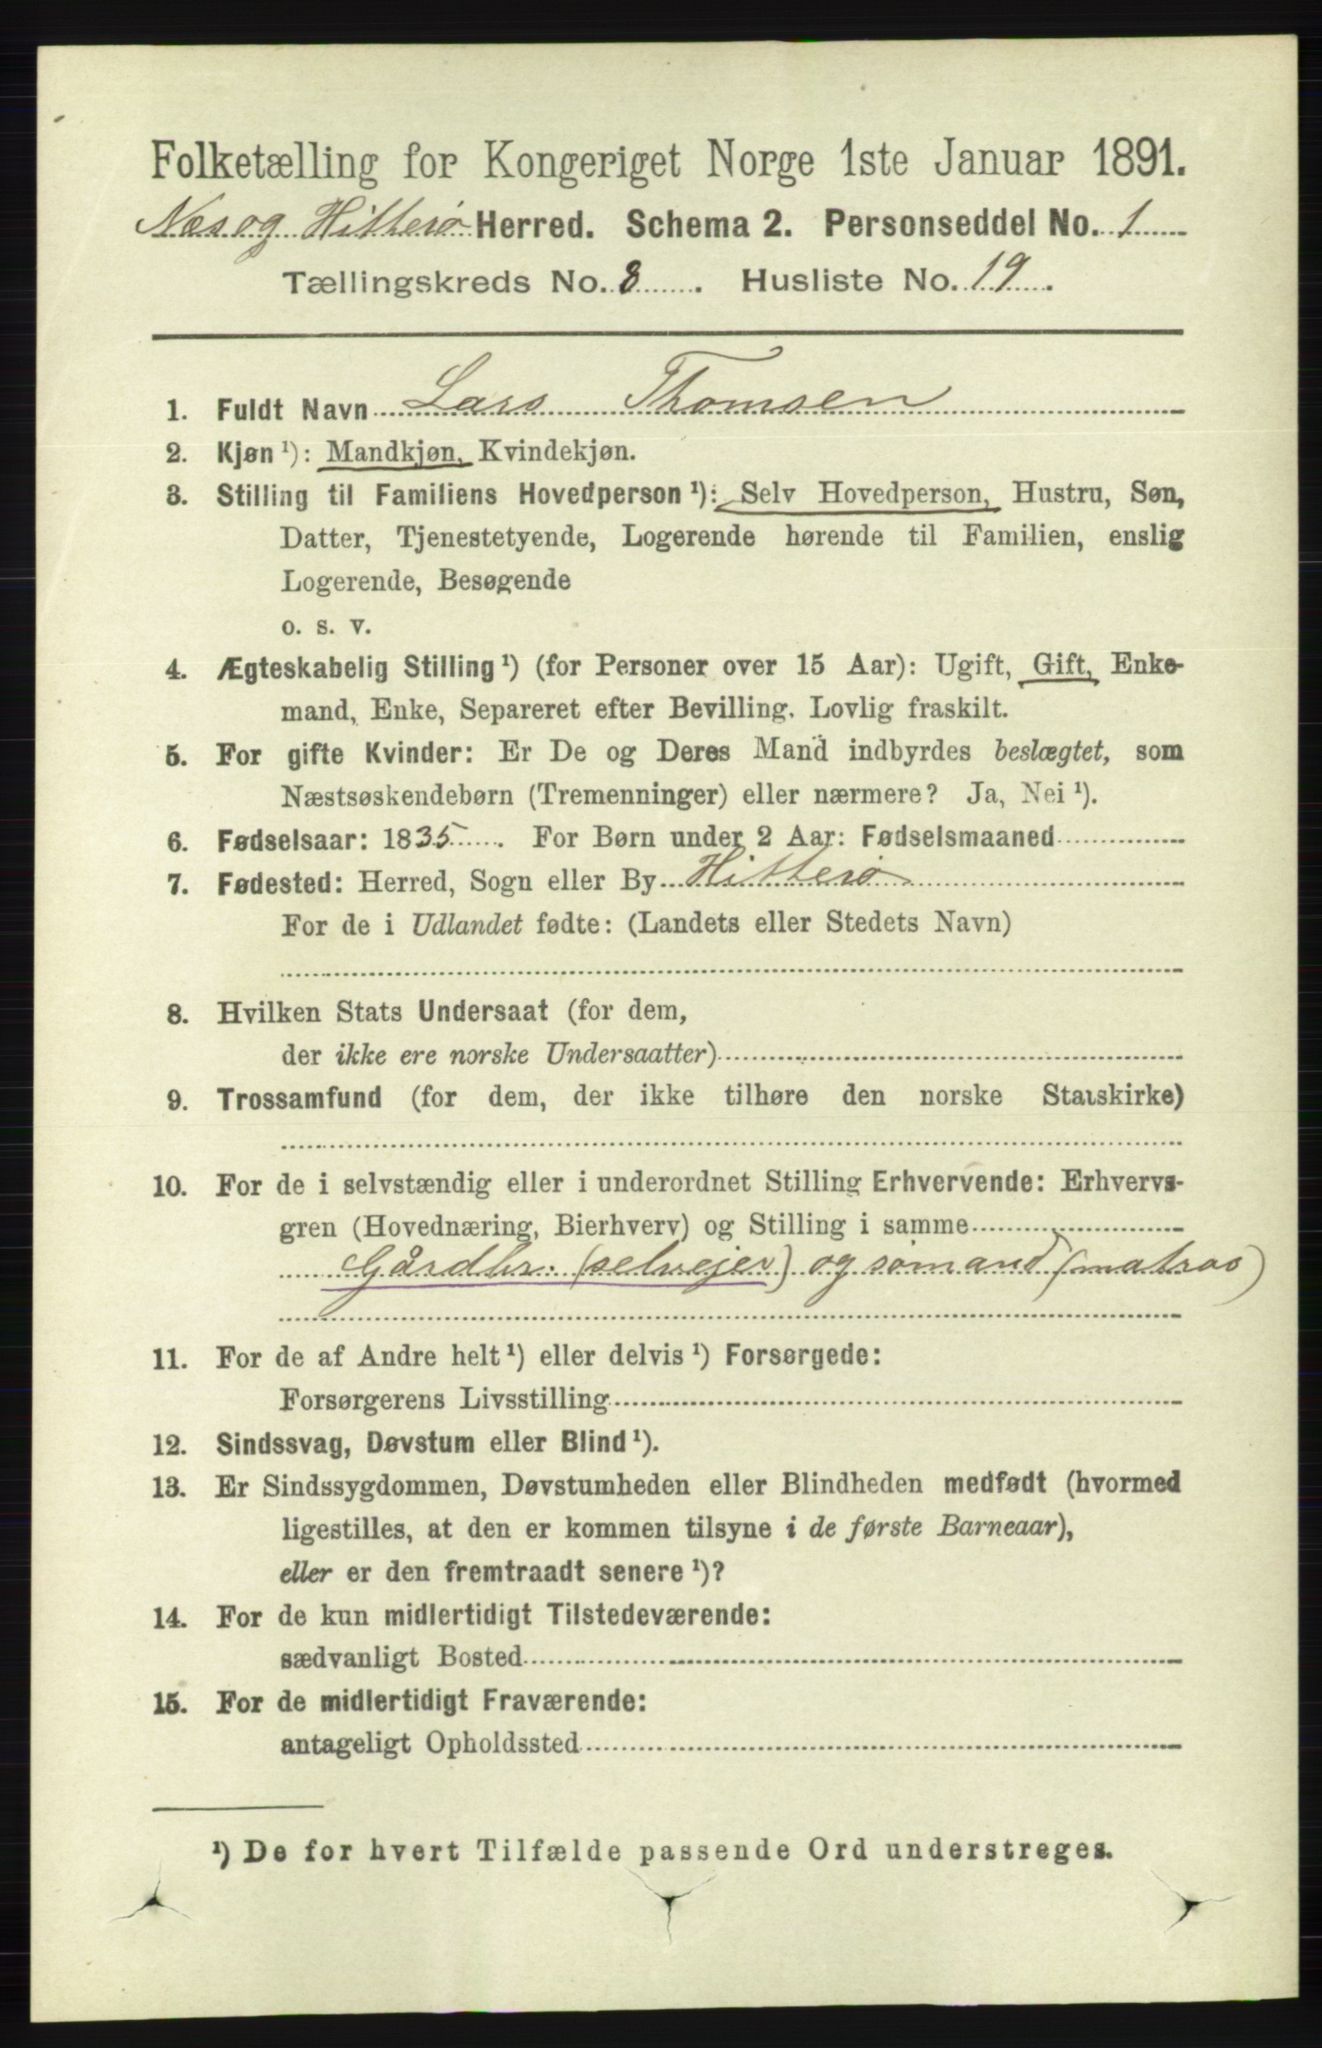 Folketælling for Kongeriget Norge 1ste Januar 1891.
Næs og Hitterø Herred. Schema 2. Personseddel No. 1
Tællingskreds No. 8. Husliste No. 19.
1. Fuldt Navn Lars Thomsen
2. Kjøn ¹): Mandkjøn, Kvindekjøn.
3. Stilling til Familiens Hovedperson ¹): Selv Hovedperson, Hustru, Søn,
Datter, Tjenestetyende, Logerende hørende til Familien, enslig
Logerende, Besøgende
o. s. v.
4. Ægteskabelig Stilling ¹) (for Personer over 15 Aar): Ugift, Gift, Enke-
mand, Enke, Separeret efter Bevilling. Lovlig fraskilt.
5. For gifte Kvinder: Er De og Deres Mand indbyrdes beslægtet, som
Næstsøskendebørn (Tremenninger) eller nærmere? Ja, Nei ¹).
6. Fødselsaar: 1835. For Børn under 2 Aar: Fødselsmaaned
7. Fødested: Herred, Sogn eller By Hitterø
For de i Udlandet fødte: (Landets eller Stedets Navn)
8. Hvilken Stats Undersaat (for dem,
der ikke ere norske Undersaatter)
9. Trossamfund (for dem, der ikke tilhøre den norske Statskirke)
10. For de i selvstændig eller i underordnet Stilling Erhvervende: Erhvervs-
gren (Hovednæring, Bierhverv) og Stilling i samme
Gårdbr. (selvejer) og sømand (matros)
11. For de af Andre helt ¹) eller delvis ¹) Forsørgede:
Forsørgerens Livsstilling
12. Sindssvag, Døvstum eller Blind ¹).
13. Er Sindssygdommen, Døvstumheden eller Blindheden medfødt (hvormed
ligestilles, at den er kommen tilsyne i de første Barneaar),
eller er den fremtraadt senere ¹)?
14. For de kun midlertidigt Tilstedeværende:
sædvanligt Bosted
15. For de midlertidigt Fraværende:
antageligt Opholdssted
¹) De for hvert Tilfælde passende Ord understreges.